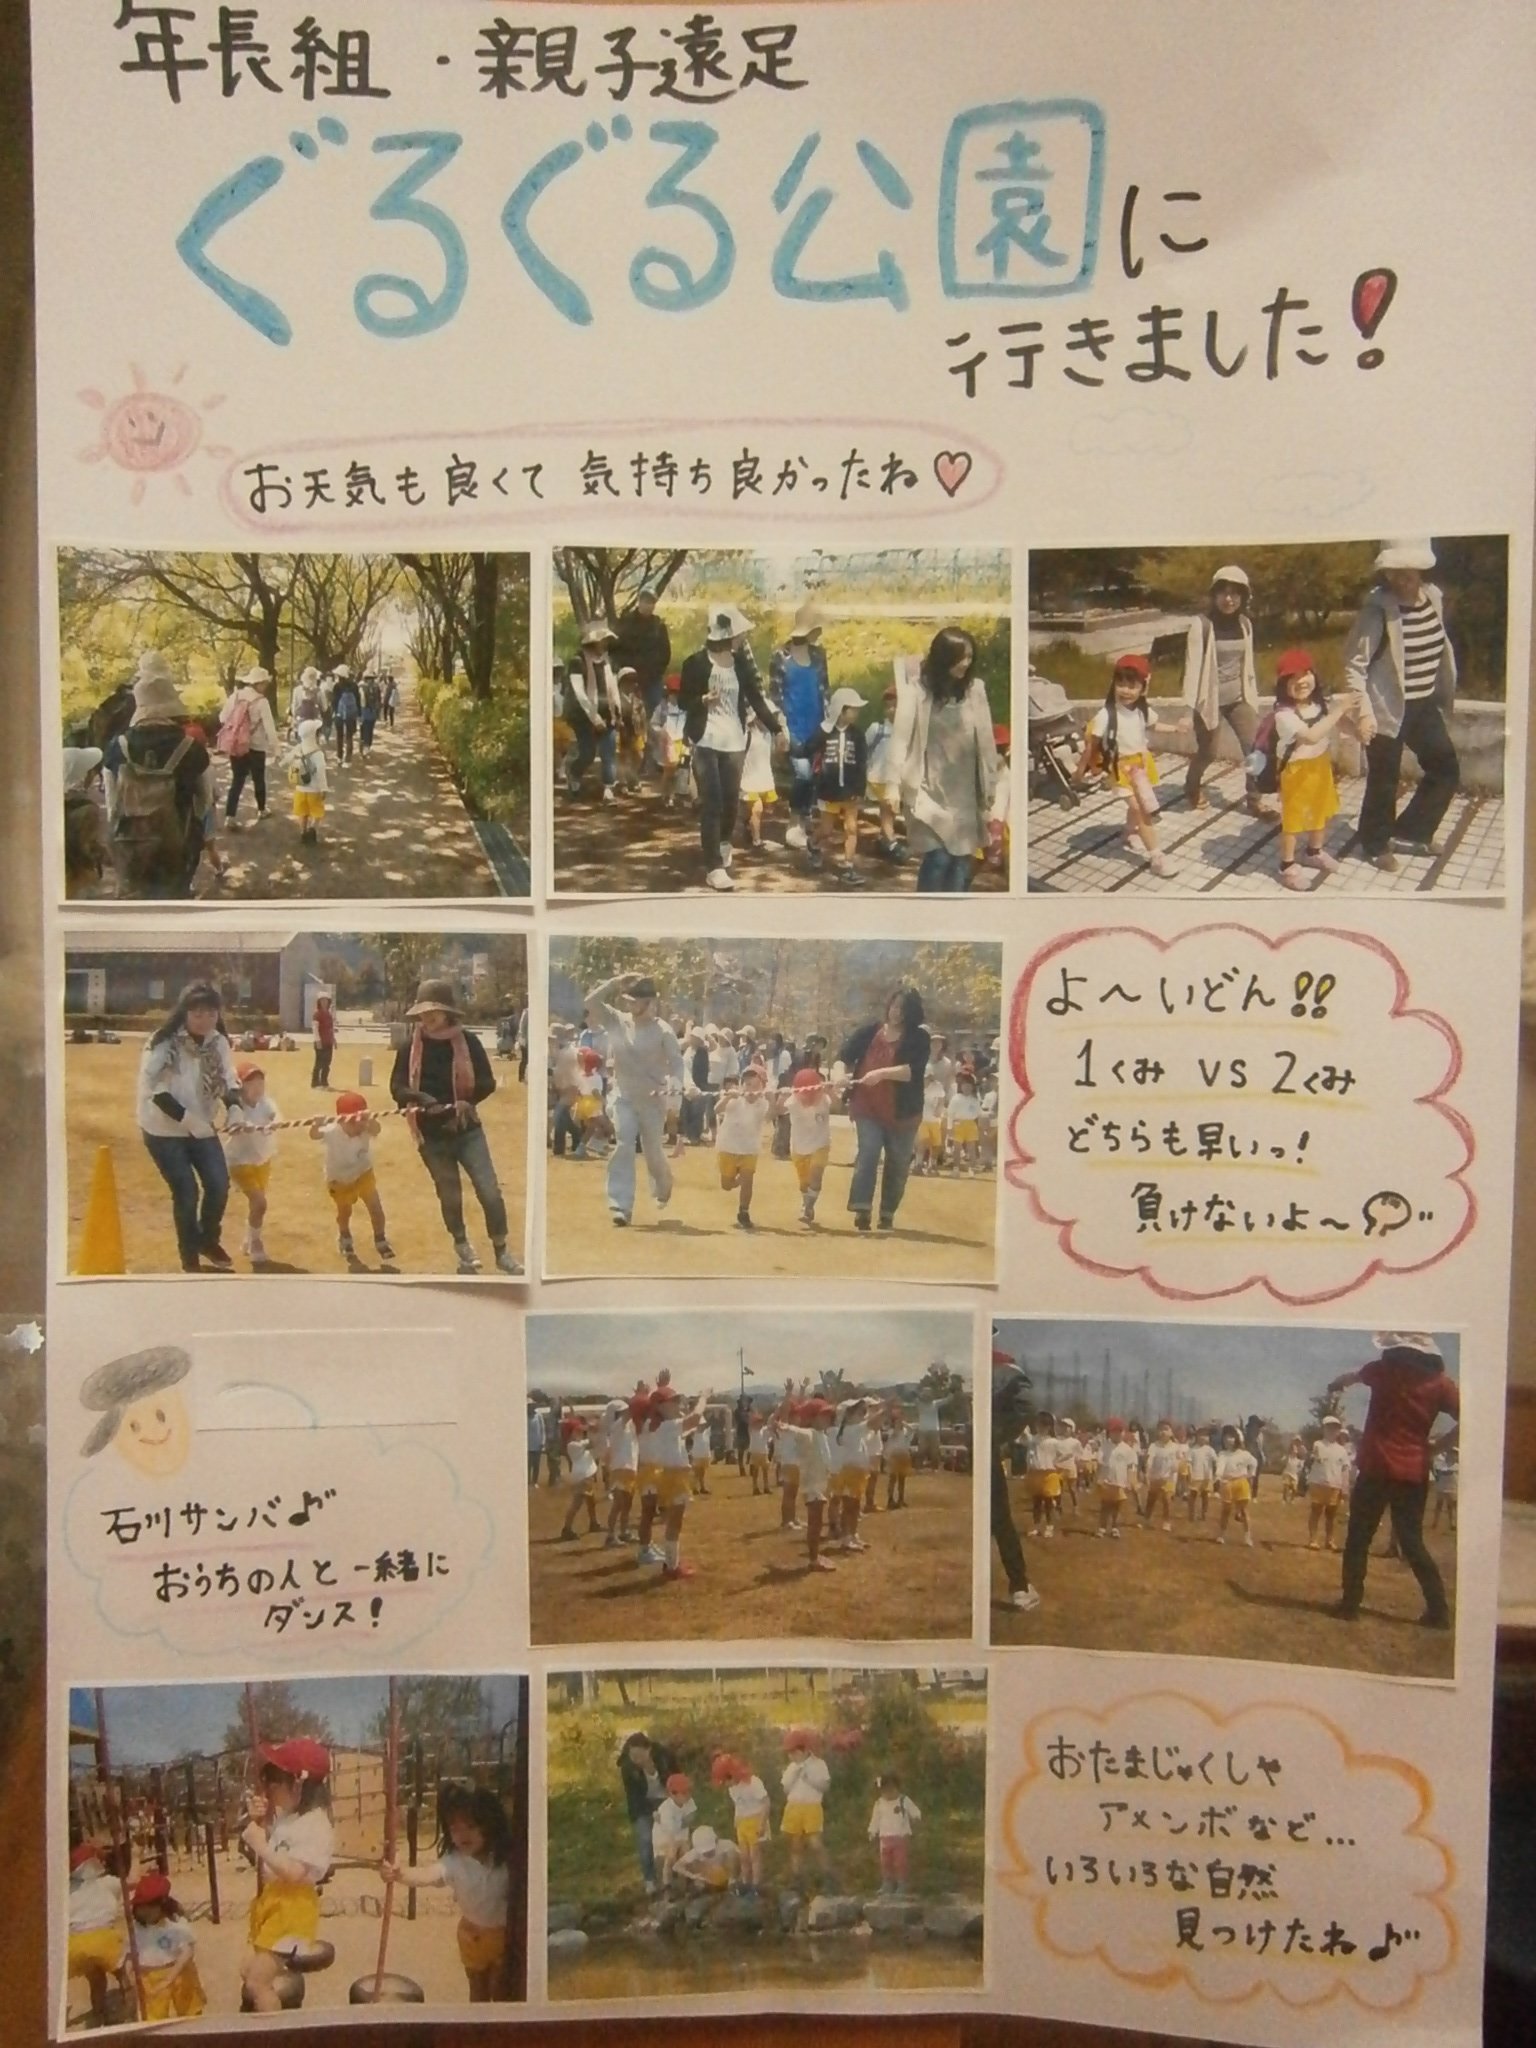 年長組・親子遠足
ぐるぐる公園に
行きました!
お天気も良くて 気持ち良かったね♡
よ〜いどん!!
1くみ vs 2くみ
どちらも早いっ!
負けないよ〜
石川サンバ♪
おうちの人と一緒に
ダンス!
おたまじゃくしや
アメンボなど...
いろいろな自然
見つけたね♪